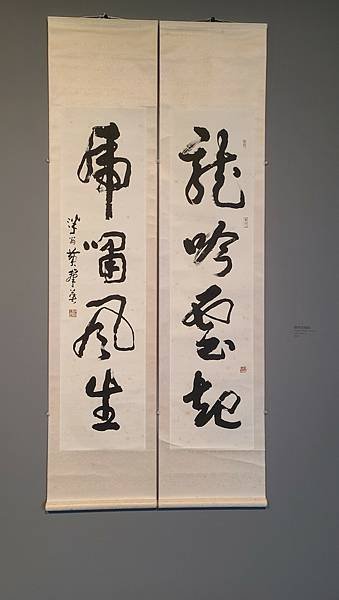 龍吟雲起
虎嘯風生